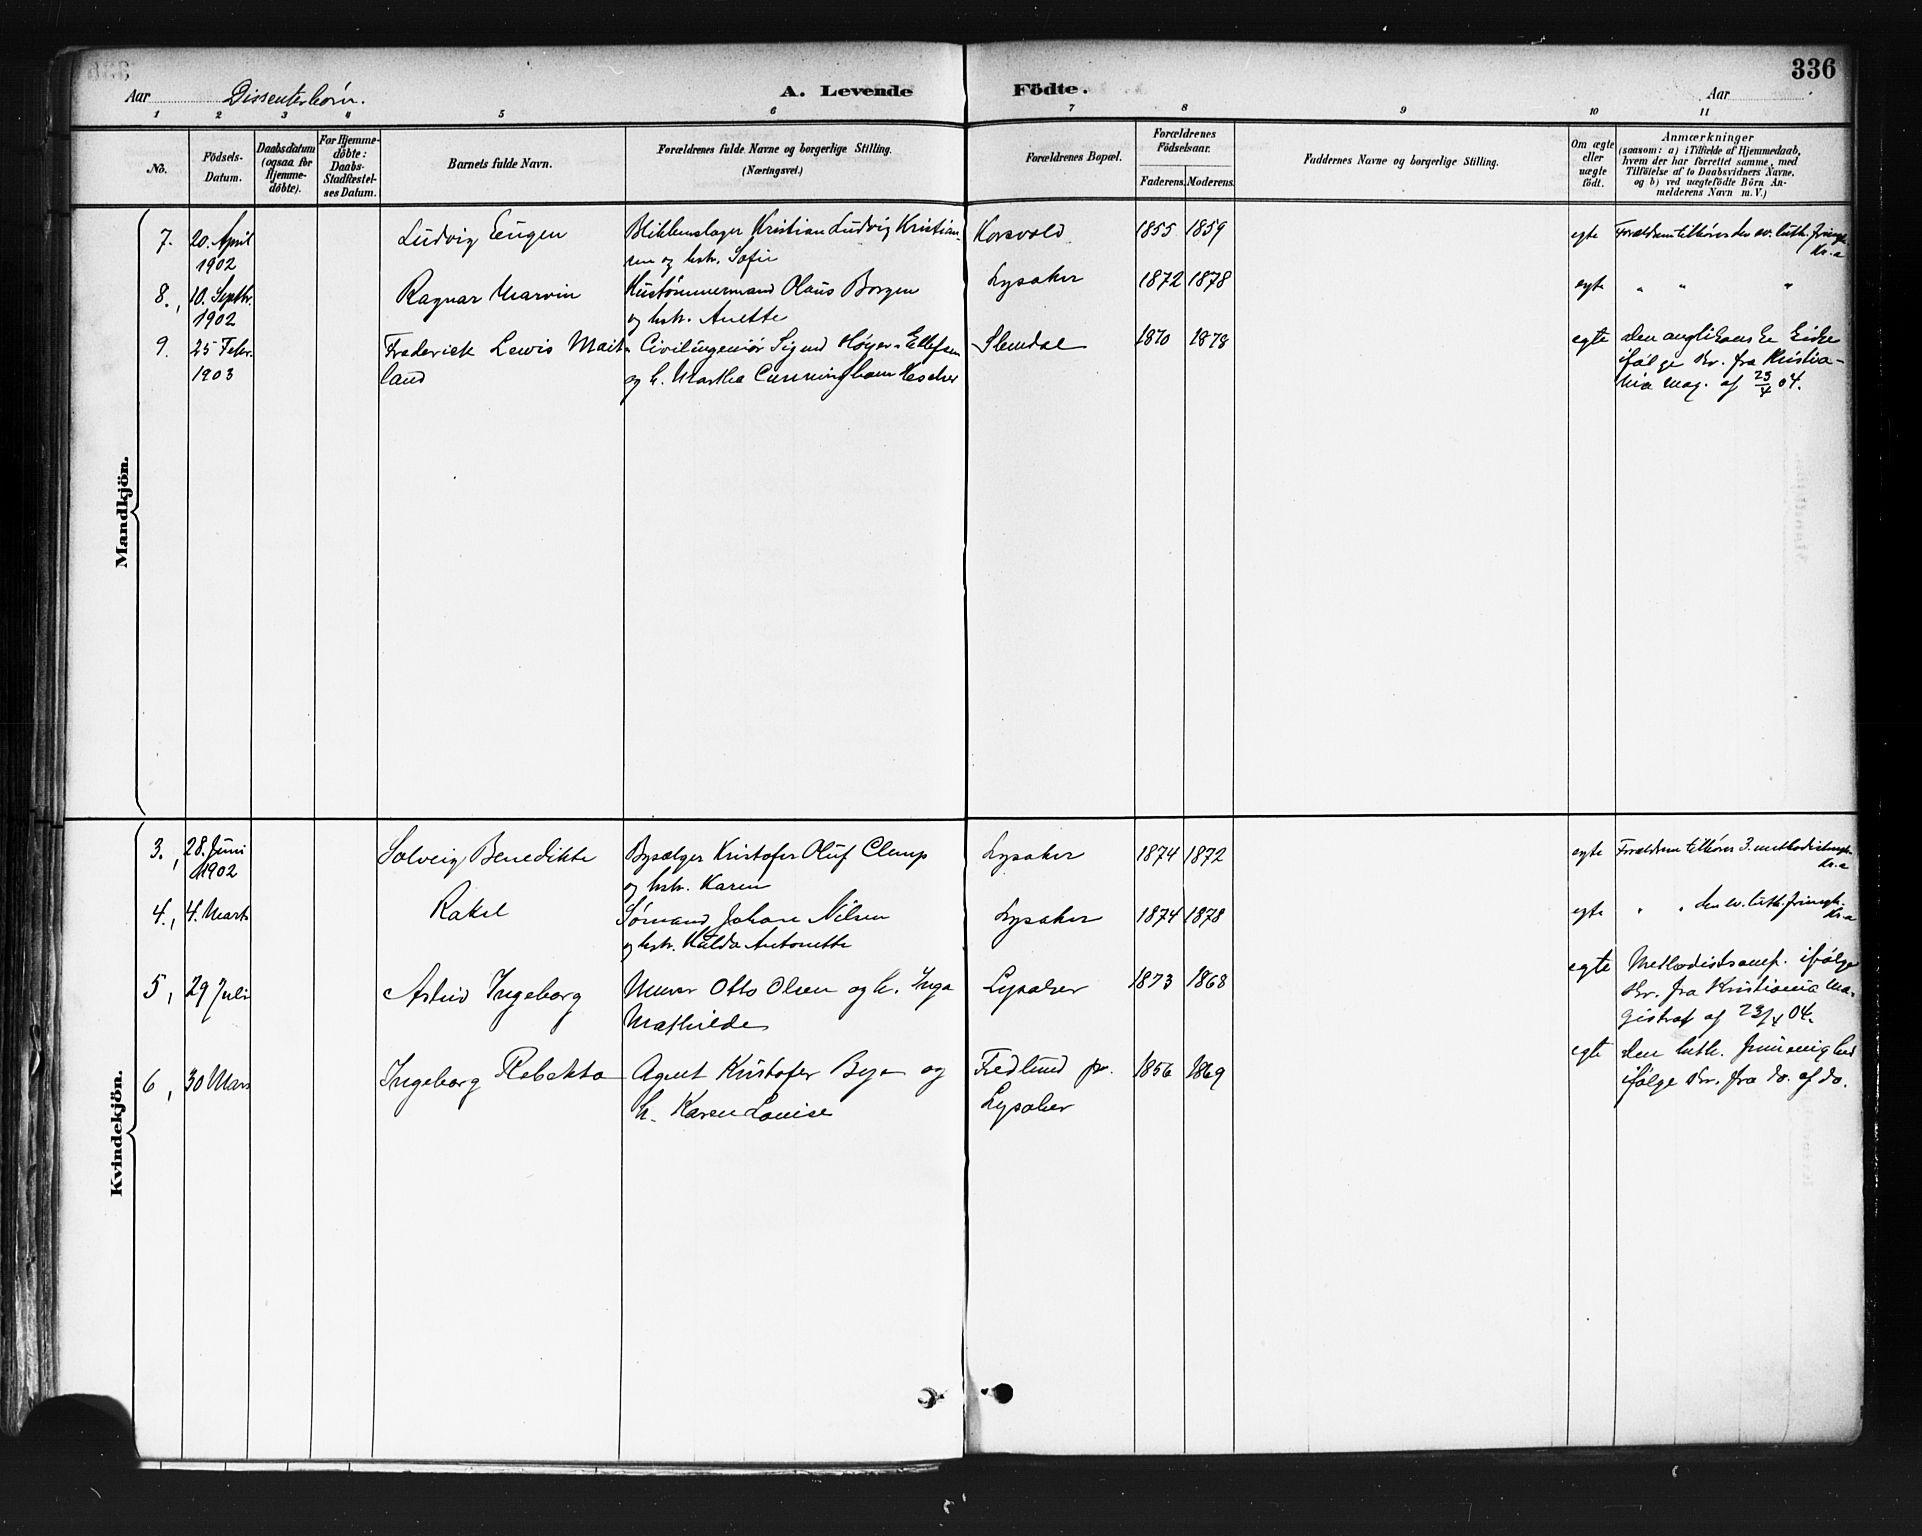 336
Aar Dissenterbørn. A. Levende Födte. Aar
1 2 3 4 5 6 7 8 9 10 11
No.
Födsels-
Datum.
Daabsdatum
(ogsaa for
Hjemme-
döbte).
For Hjemme-
döbte:
Daabs-
Stadfæstel-
ses Datum.
Barnets fulde Navn.
Forældrenes fulde Navne og borgerlige Stilling.
(Næringsvei.)
Forældrenes Bopæl.
Forældrenes
Födselsaar.
Faderens. Moderens.
Faddernes Navne og borgerlige Stilling.
Om ægte
eller
uægte
födt.
Anmærkninger
(saasom: a) i Tilfælde af Hjemmedaab,
hvem der har forrettet samme, med
Tilföielse af to Daabsvidners Navne,
og b) ved uægtefödte Börn An-
melderens Navn m. V.)
Mandkjön.
7. 20. April
1902
Ludvig Eugen
Blikkenslager Kristian Ludvig Kristian-
sen og hstr. Sofie
Korsvold
1855 1859
egte
Forældrene tilhører den ev. luth. frimgh.
Kr.a
8., 10. Septbr.
1902
Ragnar Marvin
Hustømmermand Olaus Borgen
og hstr. Anette
Lysaker
1872 1878
egte
" " "
9. 25 Febr.
1903
Frederick Lewis Mait-
land
Civilingeniør Sigurd Høyer-Ellefsen
og h. Martha Cunningham
Slemdal
1870 1878
egte
den anglikanske Kirke
ifølge Skr. fra Kristia-
nia mag. af 23/4 04.
Kvindekjön.
3., 28. Juni
1902
Solveig Benedikte
Bysælger Kristofer Oluf Clemp
og hstr. Karen
Lysaker
1874 1872
egte
Forældrene tilhører 3. methodistmgh.
Kr.a
4., 4. Marts
Rakel
Sømand Johan Nilsen
og hstr. Hulda Antonette
Lysaker
1874 1878
egte
" " den ev. luth. frimgh.
Kr.a
5, 29 Juli
Astrid Ingeborg
Murer Otto Olsen og h. Inga
Mathilde
Lysaker
1873 1868
egte
Methodistsamf. ifølge
Skr. fra Kristiania Ma-
gistrat af 23/4 04.
6, 30 Mars
Ingeborg Rebekka
Agent Kristofer Bye og
h. Karen Louise
Fredlund pr.
Lysaker
1856 1869
egte
den luth. frimenighed
ifølge Skr. fra do. af do.